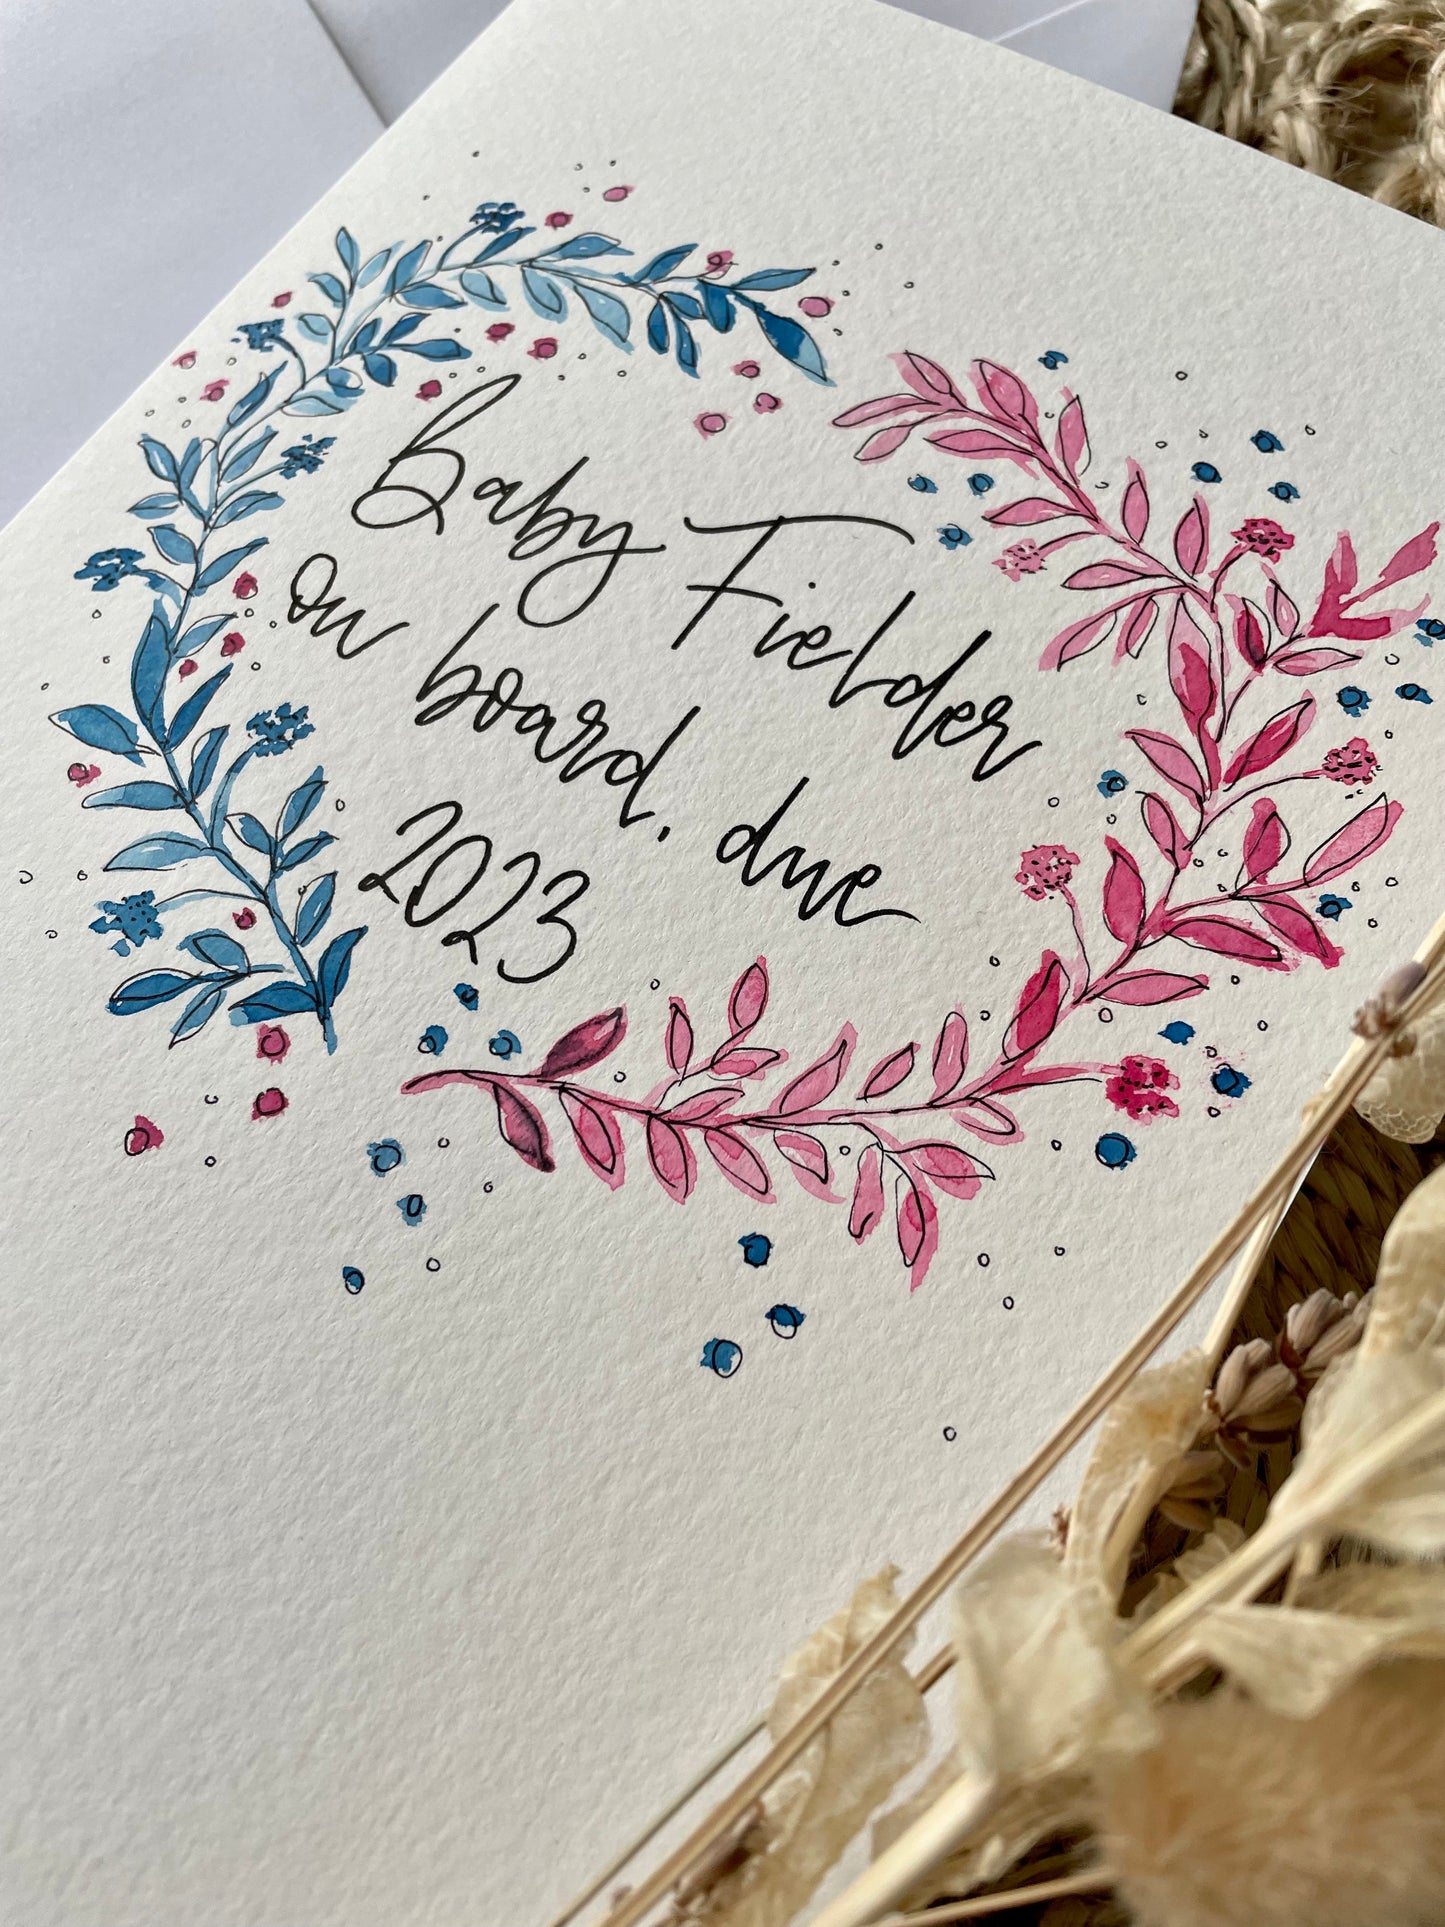 Baby Fielder
on board, due
2023